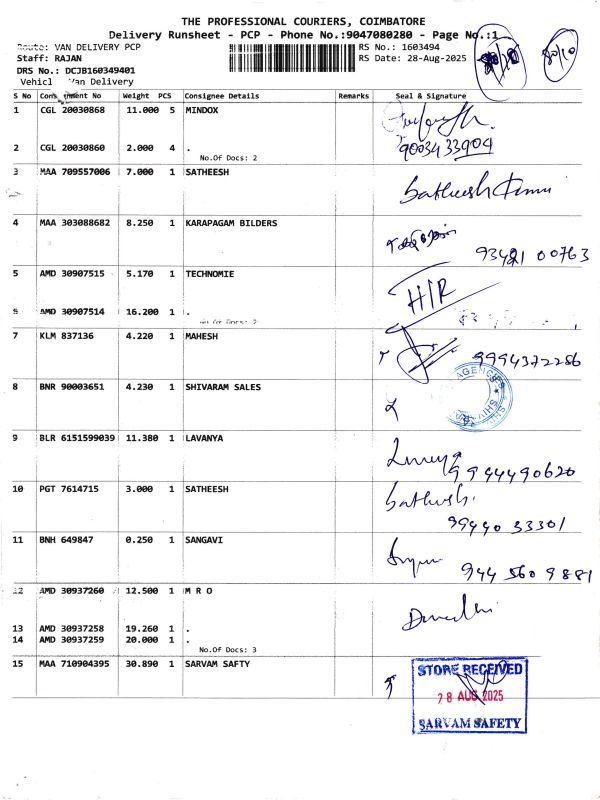 THE PROFESSIONAL COURIERS, COIMBATORE
Delivery Runsheet - PCP - Phone No.:9047080280 - Page No.:1
Route: VAN DELIVERY PCP
RS No.: 1603494
Staff: RAJAN
RS Date: 28-Aug-2025
DRS No.: DCJB160349401
Vehicl Van Delivery
S No Consignment No Weight PCS Consignee Details Remarks Seal & Signature
1 CGL 20030868 11.000 5 MINDOX
2 CGL 20030860 2.000 4 .
9003433904
No.Of Docs: 2
3 MAA 709557006 7.000 1 SATHEESH
Satheesh
4 MAA 303088682 8.250 1 KARAPAGAM BILDERS
93421 00763
5 AMD 30907515 5.170 1 TECHNOMIE
H/R
6 AMD 30907514 16.200 1 .
No.Of Docs: 2
7 KLM 837136 4.220 1 MAHESH
9994372286
8 BNR 90003651 4.230 1 SHIVARAM SALES
AGENCIES
9 BLR 6151599039 11.380 1 LAVANYA
9944490620
10 PGT 7614715 3.000 1 SATHEESH
Sathish.
99440 33301
11 BNH 649847 0.250 1 SANGAVI
944 560 9881
12 AMD 30937260 12.500 1 M R O
13 AMD 30937258 19.260 1 .
14 AMD 30937259 20.000 1 .
No.Of Docs: 3
15 MAA 710904395 30.890 1 SARVAM SAFTY
STORE RECEIVED
28 AUG 2025
SARVAM SAFETY